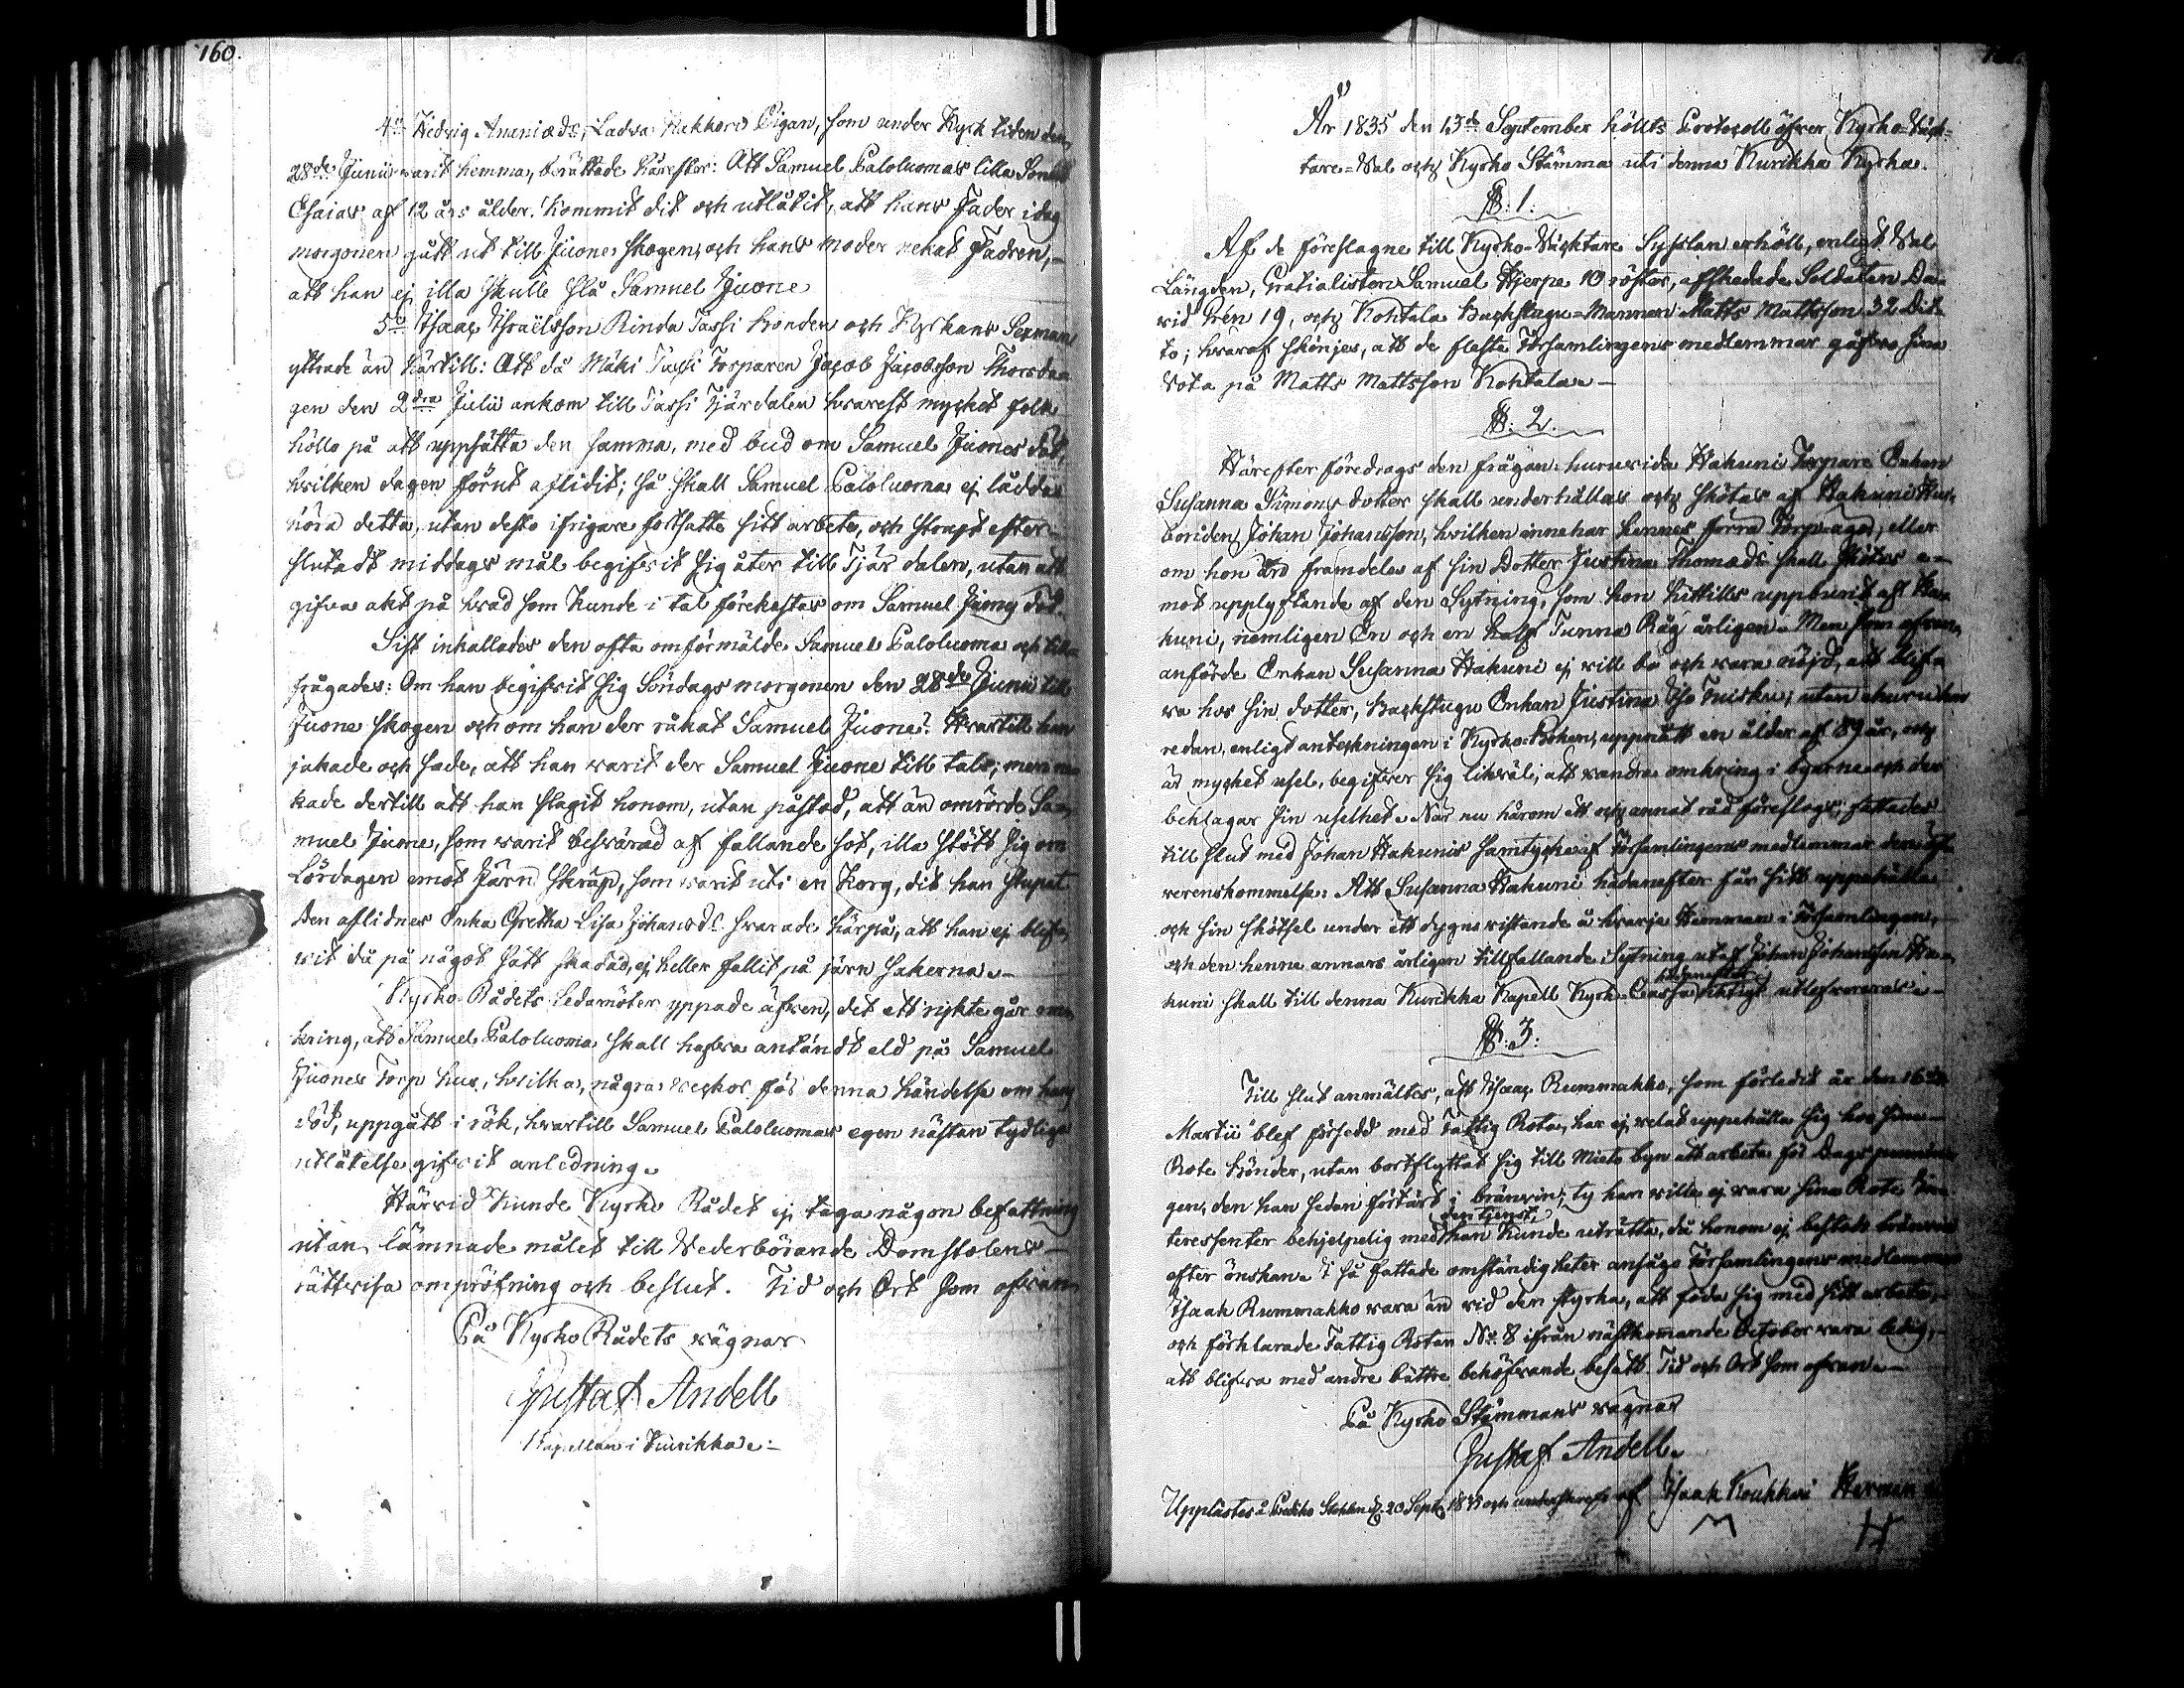 160.
4o Hedvig Ananiæ dr, Ladva Nakkori Pigan, som under Kyrk tiden den
28de Junii varit hemma, berättade härefter: Att Samuel Paloluomas lilla Son
Esaias af 12 års ålder kommit dit och utlåtit, att hans Fader i dag
morgonen gått ut till Juones skogen, och hans moder nekat Fadren,-
att han ej illa skulle slå Samuel Juone
5o Isaac Israëlsson Rinda Tassi bonden och Kyrkans Sexman
yttrade än härtill: Att då Mäki Tassi Torparen Jacob Jacobsson Thorsda-
gen den 2dra Julii ankom till Tassi Tjärdalen hvarest mycket folk
höllo på att uppsätta den samma, med bud om Samuel Juones död,
hvilken dagen förut aflidit; så skall Samuel Paloluoma ej låddas
höra detta, utan desto ifrigare fortsatte sitt arbete, och straxt efter
slutadt middags mål begifvit sig åter till Tjärdalen, utan att
gifva akt på hvad som kunde i tal förekastas om Samuel Juones död.
Sist inkallades den ofta omförmälde Samuel Paloluoma och till-
frågades: Om han begifvit sig Söndags morgonen den 28de Junii till
Juone skogen och om han der råkat Samuel Juone? Hvartill han
jakade och sade, att han varit der Samuel Juone till tals; men ne-
kade dertill att han slagit honom, utan påstod, att än omrörde Sa-
muel Juone, som varit besvärad af fallande sot, illa stött sig om
Lördagen emot järn skräp, som varit uti en Korg, dit han stupat
Den aflidnes Enka Gretha Lisa Johansdr svarade härpå, att han ej blif-
vit då på något sätt skadad, ej heller fallit på järn sakerna.-
Kyrko-Rådets Ledamöter yppade äfven, det ett rykte går om-
kring, att Samuel Paloluoma skall hafva antändt eld på Samuel
Juones Torp hus, hvilka, några veckor för denna händelse om hans
död, uppgått i rök, hvartill Samuel Paloluomas egen nästan tydliga
utlåtelse gifvit anledning.
Härvid kunde Kyrko Rådet ej taga någon befattning
utan lämnade målet till Vederbörande Domstolens-
rättvisa ompröfning och beslut. Tid och Ort som ofvan
På Kyrko Rådets vägnar
Gustaf Andell
Kapellan i Kurikka.-
År 1835 den 13de September hölts Protocoll öfver Kyrko-Väck-
tare-Val och Kyrko Stämma uti denna Kurikka Kyrka.
§: 1.
Af de föreslagne till Kyrko-Väcktare Sysslan erhöll, enligt Val
Längden, Gratialisten Samuel Hjerpe 10 röster, afskedade Soldaten Da-
vid Gren 19, och Kohtala Backstugu-Mannen Matts Mattsson 32 Dit-
to; hvaraf skönjes, att de fleste Församlingens medlemmar gåfvo sina
Vota på Matts Mattsson Kohtala.-
§: 2.
Härefter föredrogs den frågan: huruvida Hakuni Torpare Enkan
Susanna Simons dotter skall underhållas och skötas af Hakuni Hus-
bonden Johan Johansson, hvilken innehar hennes förra Torp-ägor, eller
om hon än framdeles af sin Dotter Justina Thomædr skall skötas e-
mot upplyftande af den Sytning, som hon hittills uppburit af Ha-
kuni, nemligen En och en half Tunna Råg årligen. Men som ofvan-
anförde Enkan Susanna Hakuni ej vill bo och vara nöjd, att blif-
va hos sin dotter, Backstugu Enkan Justina Iso Tuisku; utan ehuru hon
redan, enligt anteckningen i Kyrko-Boken, uppnått en ålder af 89 år, och
är mycket usel, begifver sig likväl, att vandra omkring i byarne och der
beklagar sin uselhet. När nu härom ett och annat råd föreslogs; fattades
till slut med Johan Hakunis samtycke af Församlingens medlemmar den öf-
verenskommelse: Att Susanna Hakuni hädanefter får sitt uppehälle
och sin skötsel under ett dygns vistande å hvarje Hemman i Församlingen,
och den henne annars årligen tillfallande Sytning utaf Johan Johansson Ha-
hädanefter
kuni skall till denna Kurikka Kapell Kyrk-Cassa riktigt utlefvereras.-
§: 3:
Till slut anmältes, att Isaac Rummakko, som förledit år den 16de
Martii blef försedd med Fattig Rota, har ej velat uppehålla sig hos sina-
Rote Bönder, utan bortflyttat sig till Mieto byn att arbeta för Dags pennin-
gen, den han sedan förtärt i bränvin; ty han ville ej vara sina Rote In-
den tjenst,
teressenter behjelpelig med han kunde uträtta, då honom ej bestods bränvin
efter önskan. I så fattade omständigheter ansågo Församlingens medlemmar
Isaak Rummakko vara än vid den styrka, att föda sig med sitt arbete,-
och förklarade Fattig Rotan No 8 ifrån nästkommande October vara ledig,-
att blifva med andre bättre behöfvande besatt. Tid och Ort som ofvan.-
På Kyrko Stämmans vägnar
Gustaf Andell.
Upplästes å Prediko Stolen d. 20 Sept. 1835 och underskrefs af Isaak Koukkari Herman
M H